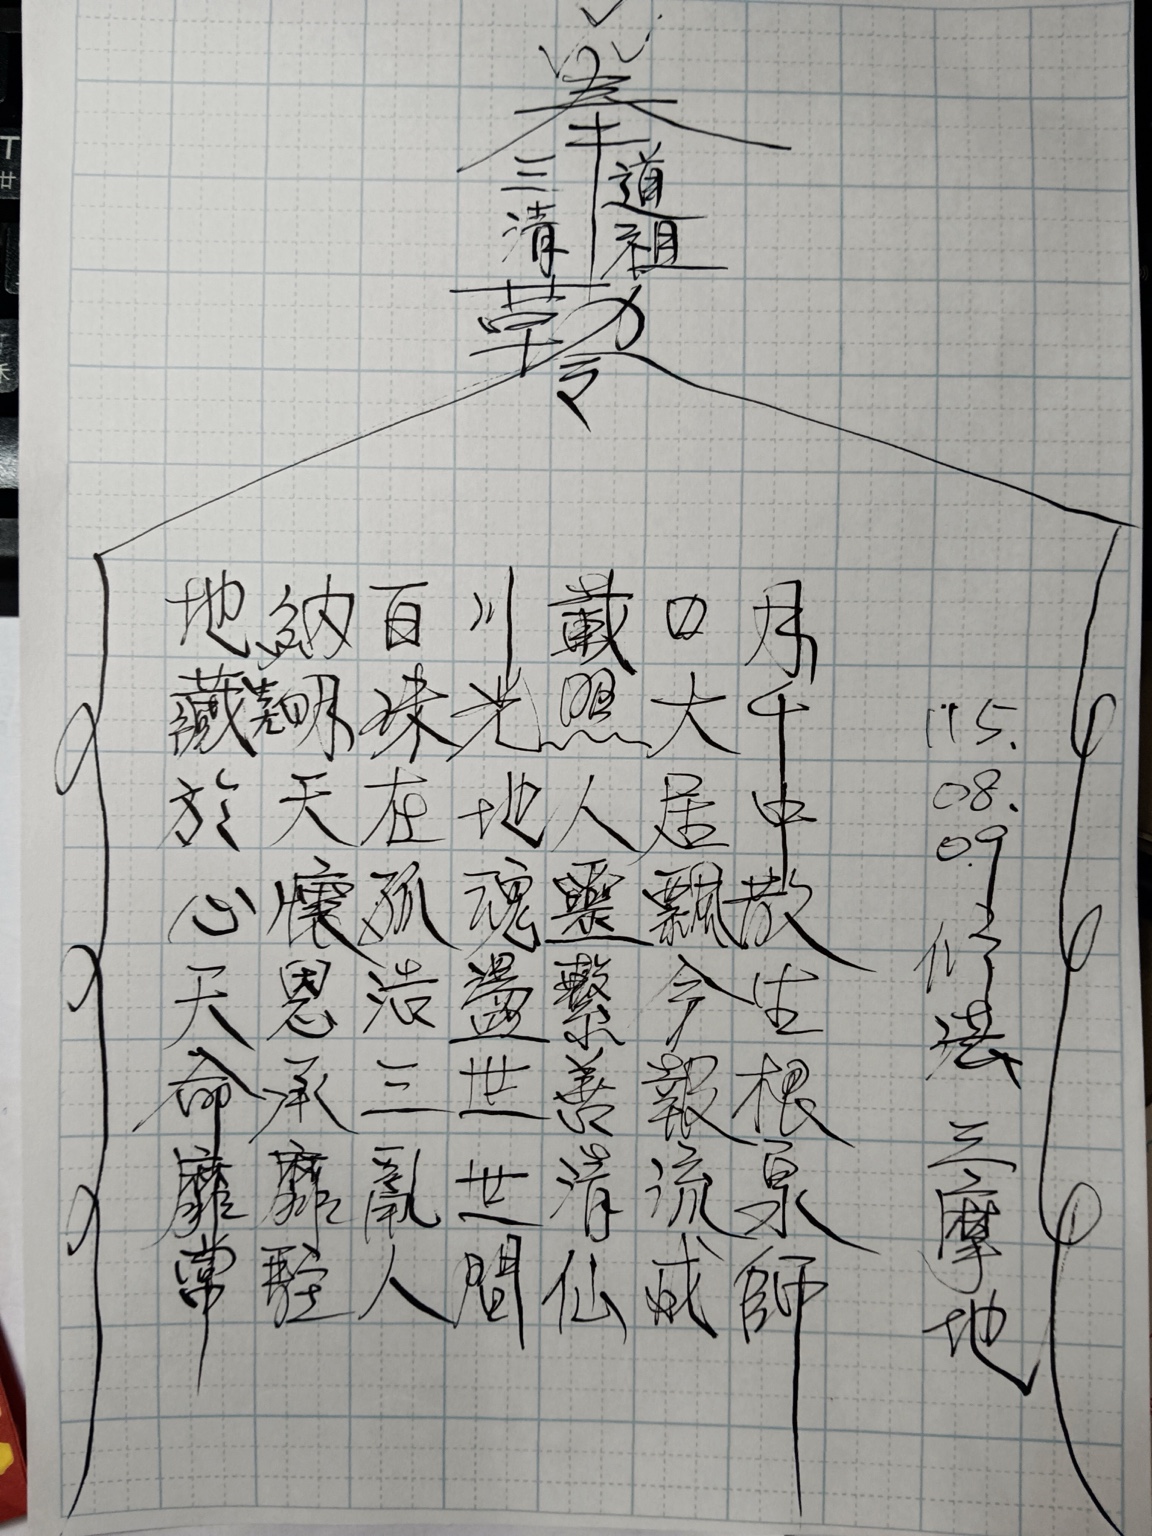 奉
三清
道祖
令
地納百川載日月
藏明珠光照大千
於天在地人居中
心懷孤魂靈飄散
天恩浩盪繫今生
命承三世善報根
靡靡亂世清流泉
常駐人間仙師
115.
08.
09
修法 三摩地